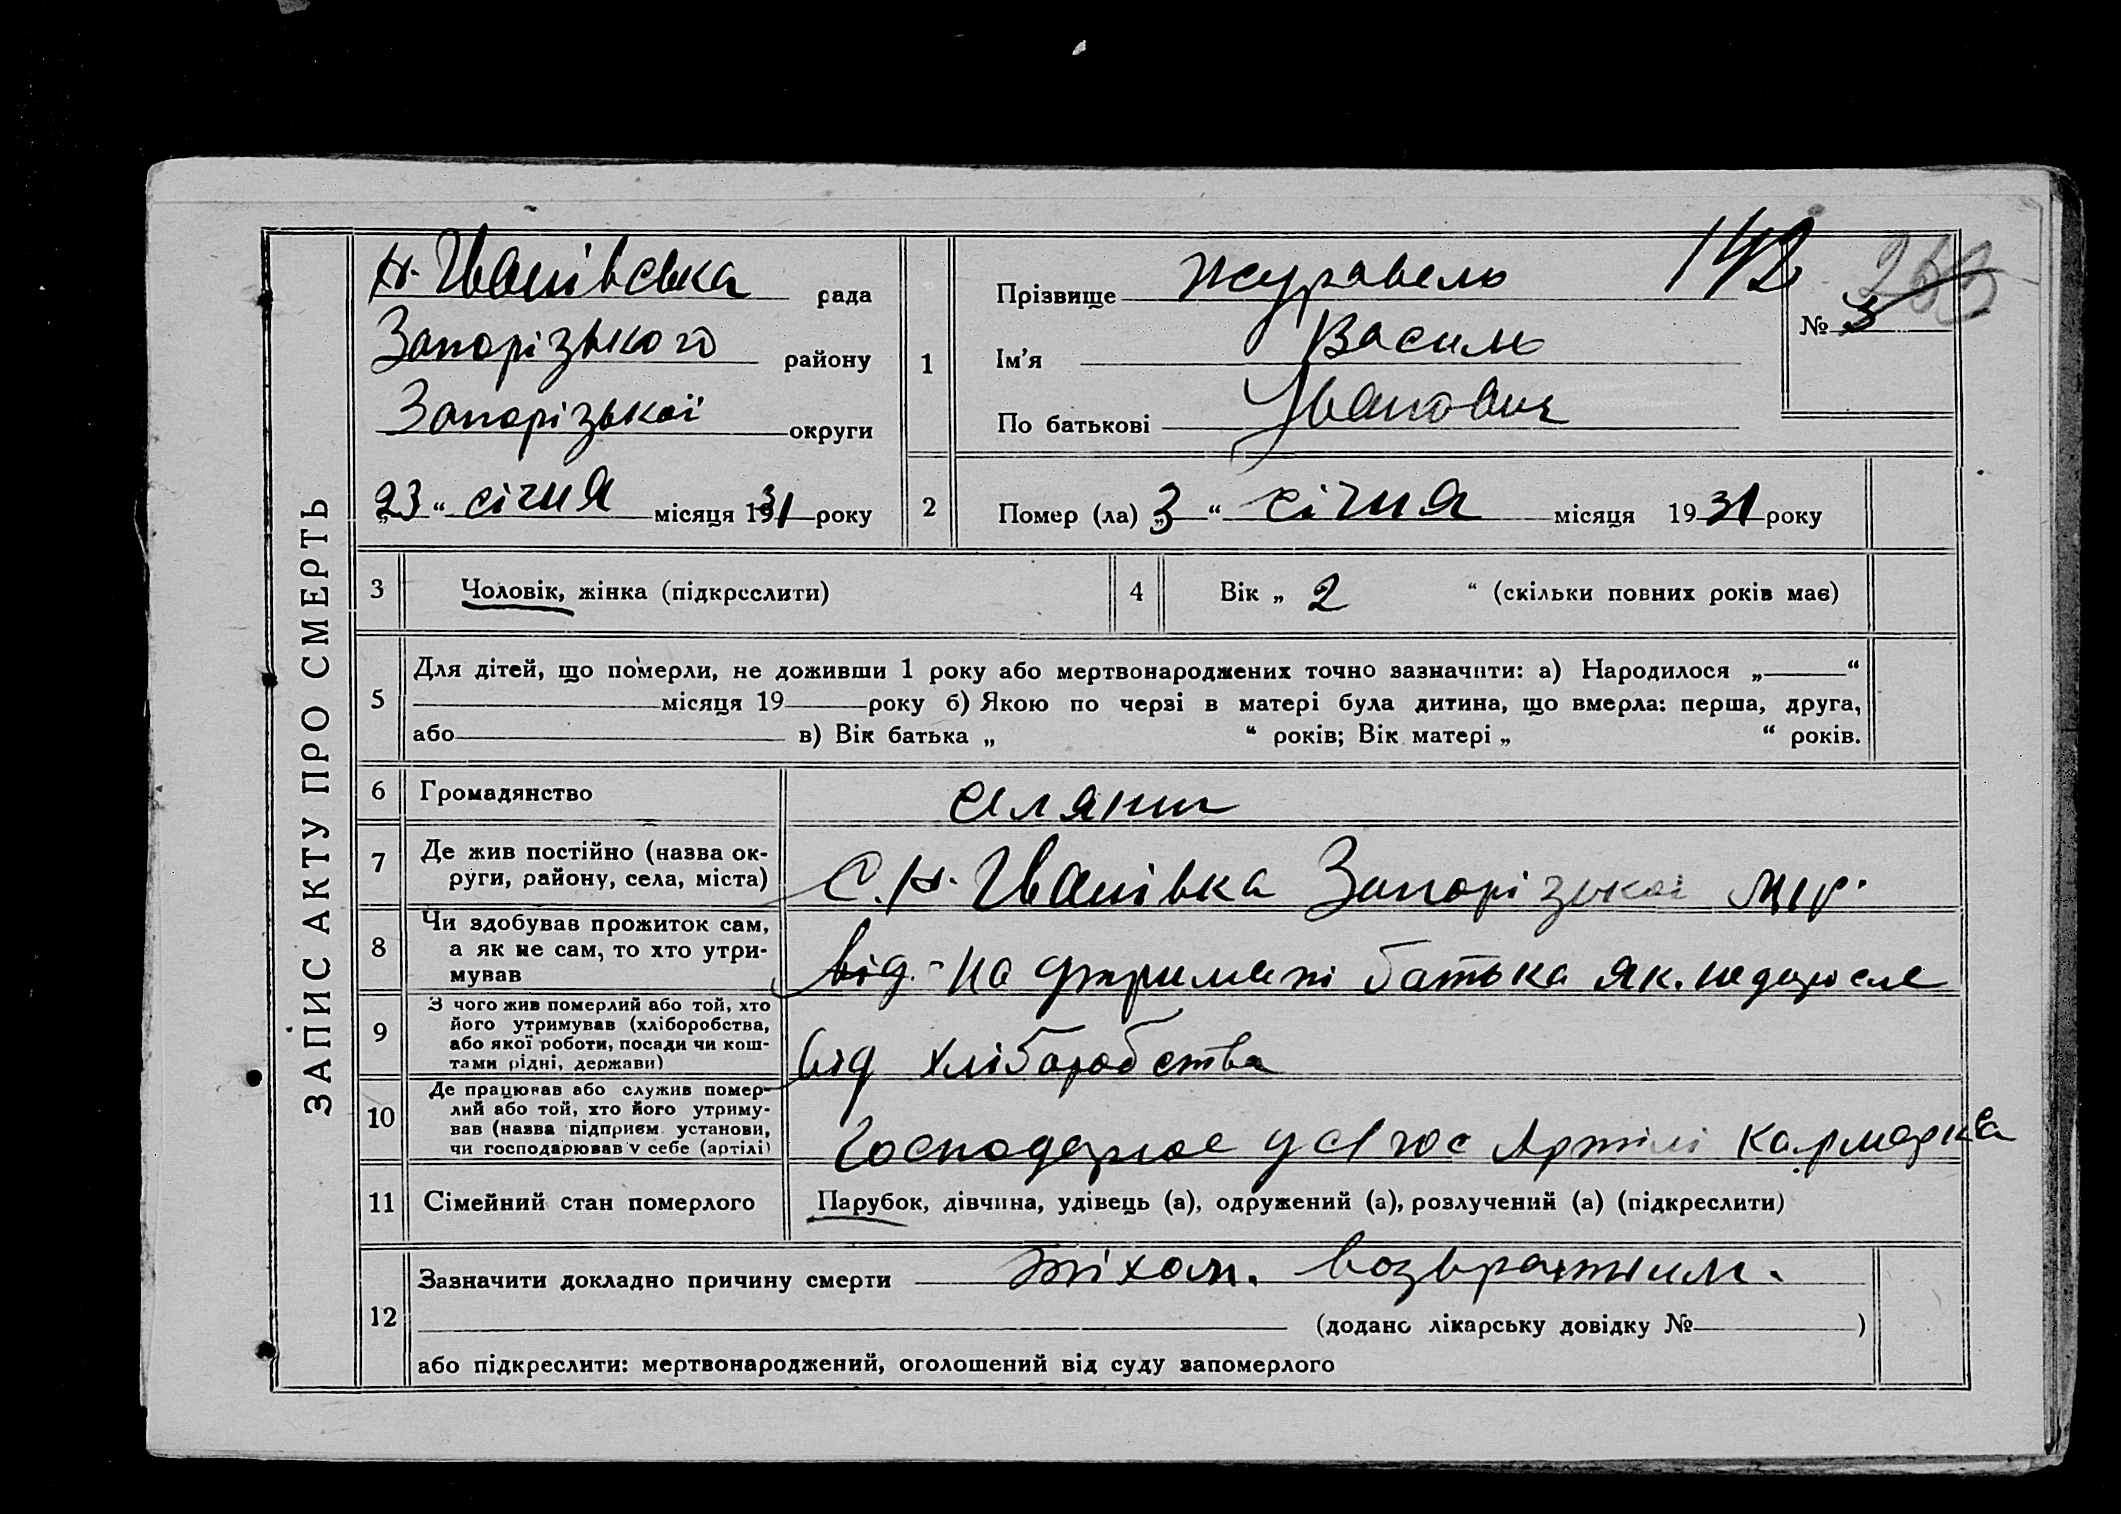 ЗАПИС АКТУ ПРО СМЕРТЬ
Н. Іванівська рада
Запорізького району
Запорізької округи
„23“ січня місяця 1931 року
1
Прізвище Журавель
Ім'я Василь
По батькові Іванович
142
№ 3
2
Помер (ла) „3“ січня місяця 1931 року
3 Чоловік, жінка (підкреслити)
4 Вік „ 2 “ (скільки повних років має)
5
Для дітей, що померли, не доживши 1 року або мертвонароджених точно зазначити: а) Народилося „ “
місяця 19 року б) Якою по черзі в матері була дитина, що вмерла: перша, друга,
або в) Вік батька „ “ років; Вік матері „ “ років.
6 Громадянство
7 Де жив постійно (назва ок-
руги, району, села, міста)
С. Н. Іванівка Запорізької
8 Чи здобував прожиток сам,
а як не сам, то хто утри-
мував
від. на утримані батька як.
9 З чого жив померлий або той, хто
його утримував (хліборобства,
або якої роботи, посади чи кош-
тами рідні, держави)
від хліборобства
10 Де працював або служив помер-
лий або той, хто його утриму-
вав (назва підприєм. установи,
чи господарював у себе (артілі)
Артілі
11 Сімейний стан померлого Парубок, дівчина, удівець (а), одружений (а), розлучений (а) (підкреслити)
12
Зазначити докладно причину смерти возвратним.
(додано лікарську довідку № )
або підкреслити: мертвонароджений, оголошений від суду запомерлого